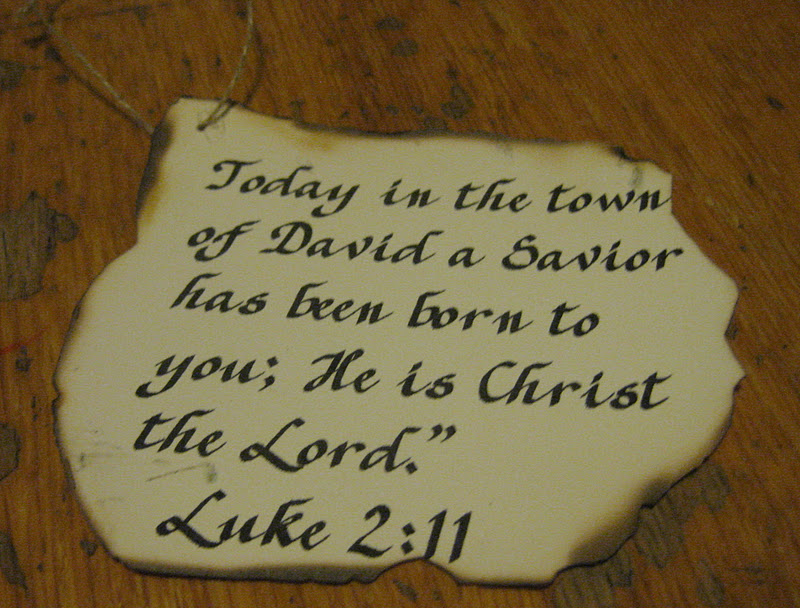 Today in the town
of David a Savior
has been born to
you; He is Christ
the Lord.”
Luke 2:11